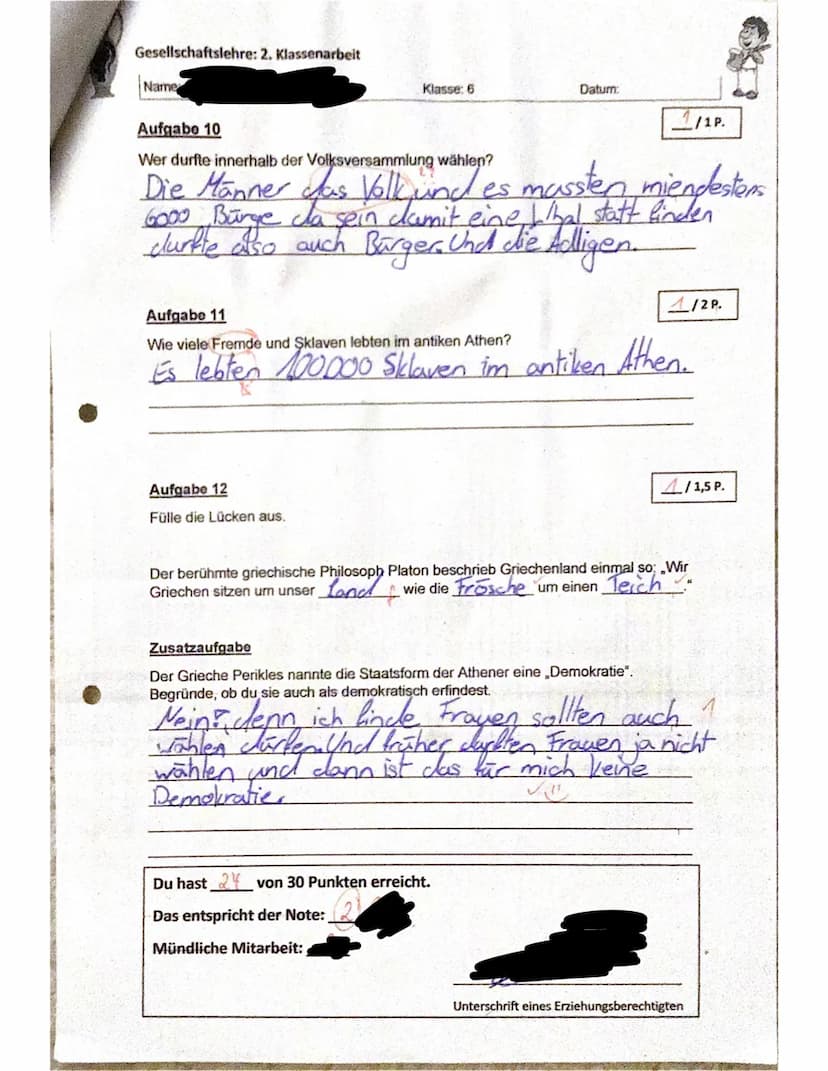 Gesellschaftslehre: 2. Klassenarbeit
Name: Klasse: 6 Datum:
Aufgabe 10 1 / 1 P.
Wer durfte innerhalb der Volksversammlung wählen?
Die Männer das Volk und es mussten miendestens
6000 Bürge da sein damit eine Whal statt finden
durfte also auch Bürger. Und die Adligen.
Aufgabe 11 1 / 2 P.
Wie viele Fremde und Sklaven lebten im antiken Athen?
Es lebten 100000 Sklaven im antiken Athen.
Aufgabe 12 1 / 1,5 P.
Fülle die Lücken aus.
Der berühmte griechische Philosoph Platon beschrieb Griechenland einmal so: „Wir
Griechen sitzen um unser Land f wie die Frösche um einen Teich."
Zusatzaufgabe
Der Grieche Perikles nannte die Staatsform der Athener eine „Demokratie".
Begründe, ob du sie auch als demokratisch erfindest.
Nein, denn ich finde Frauen sollten auch 1
wählen dürfen. Und früher durften Frauen ja nicht
wählen und dann ist das für mich keine
Demokratie.
Du hast 24 von 30 Punkten erreicht.
Das entspricht der Note: 2
Mündliche Mitarbeit:
Unterschrift eines Erziehungsberechtigten